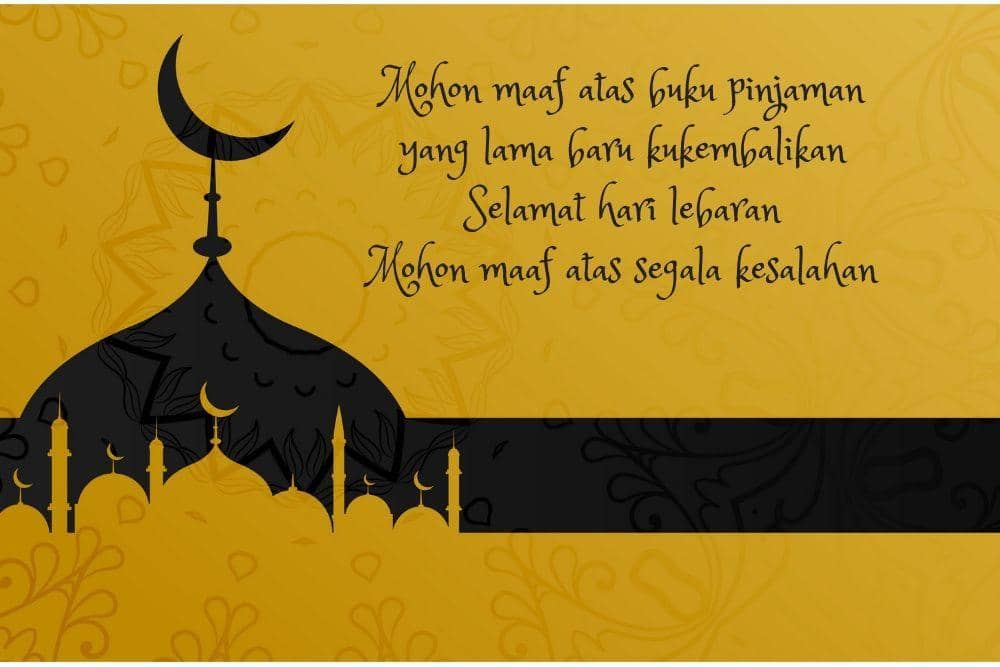 Mohon maaf atas buku pinjaman
yang lama baru kukembalikan
Selamat hari lebaran
Mohon maaf atas segala kesalahan